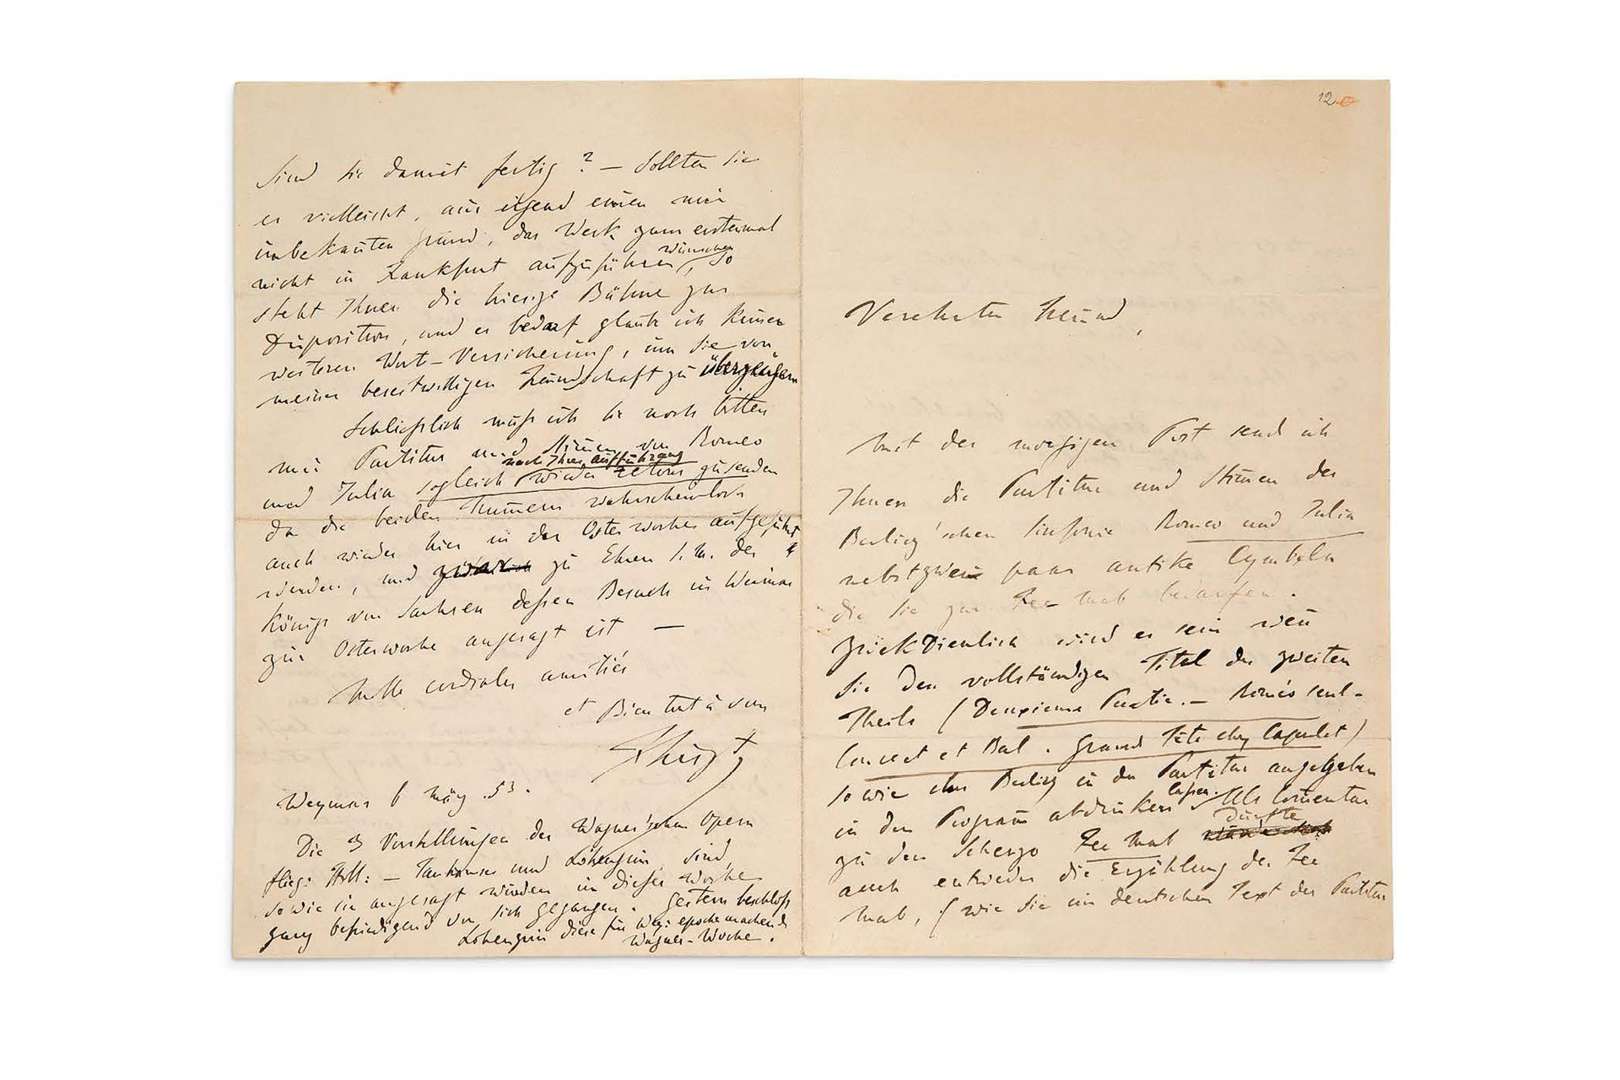 12
Verehrter Freund,
Mit der morgigen Post send ich
Ihnen die Partitur und Stimen der
Berlioz'schen Sinfonie Romeo und Julia
nebst zwei paar antike Cymbeln
die Sie zur Fee Mab bedürfen.
Zwekdienlich wird es sein wen
Sie den vollständigen Titel des zweiten
Theils (Deuxieme Partie. — Roméo seul -
Concert et Bal. Grand Fête chez Capulet)
so wie ihn Berlioz in der Partitur angegeben
in dem Program abdruken lassen. Als Comentar
zu dem Scherzo Fee Mab dürfte
auch entwieder die Erzählung der Fee
Mab, (wie Sie im deutschen Text der Partitur
Sind Sie damit fertig? — Sollten Sie
es vielleicht, aus irgend einen mir
unbekanten Grund, das Werk zum erstenmal
nicht in Frankfurt aufzuführen wünschen, so
steht Ihnen die hiesige Bühne zur
Disposition, und es bedarf glaube ich keinen
weiteren Wort-Versicherung, um Sie von
meiner bereitwilligen Freundschaft zu überzeugen
Schließlich muß ich Sie noch bitten
mir Partitur und Stimen von Romeo
und Julia sogleich nach Ihrer Aufführung wieder retour zusenden
da die beiden Numern wahrscheinlich
auch wieder hier in der Osterwoche aufgeführt
werden, und zu Ehren S. M. des
Königs von Sachsen dessen Besuch in Weimar
zur Osterwoche angesagt ist —
Mille cordiales amitiés
et Bien tout à vous
FLiszt
Weymar 6 März .53.
Die 3 Vorstellungen der Wagner'schen Opern
flieg: Holl: — Tanhauser und Lohengrin, sind,
so wie sie angesagt wurden in dieser Woche
ganz befriedigend vor sich gegangen. Gestern beschloß
Lohengrin diese für Wei: epochemachende
Wagner-Woche.